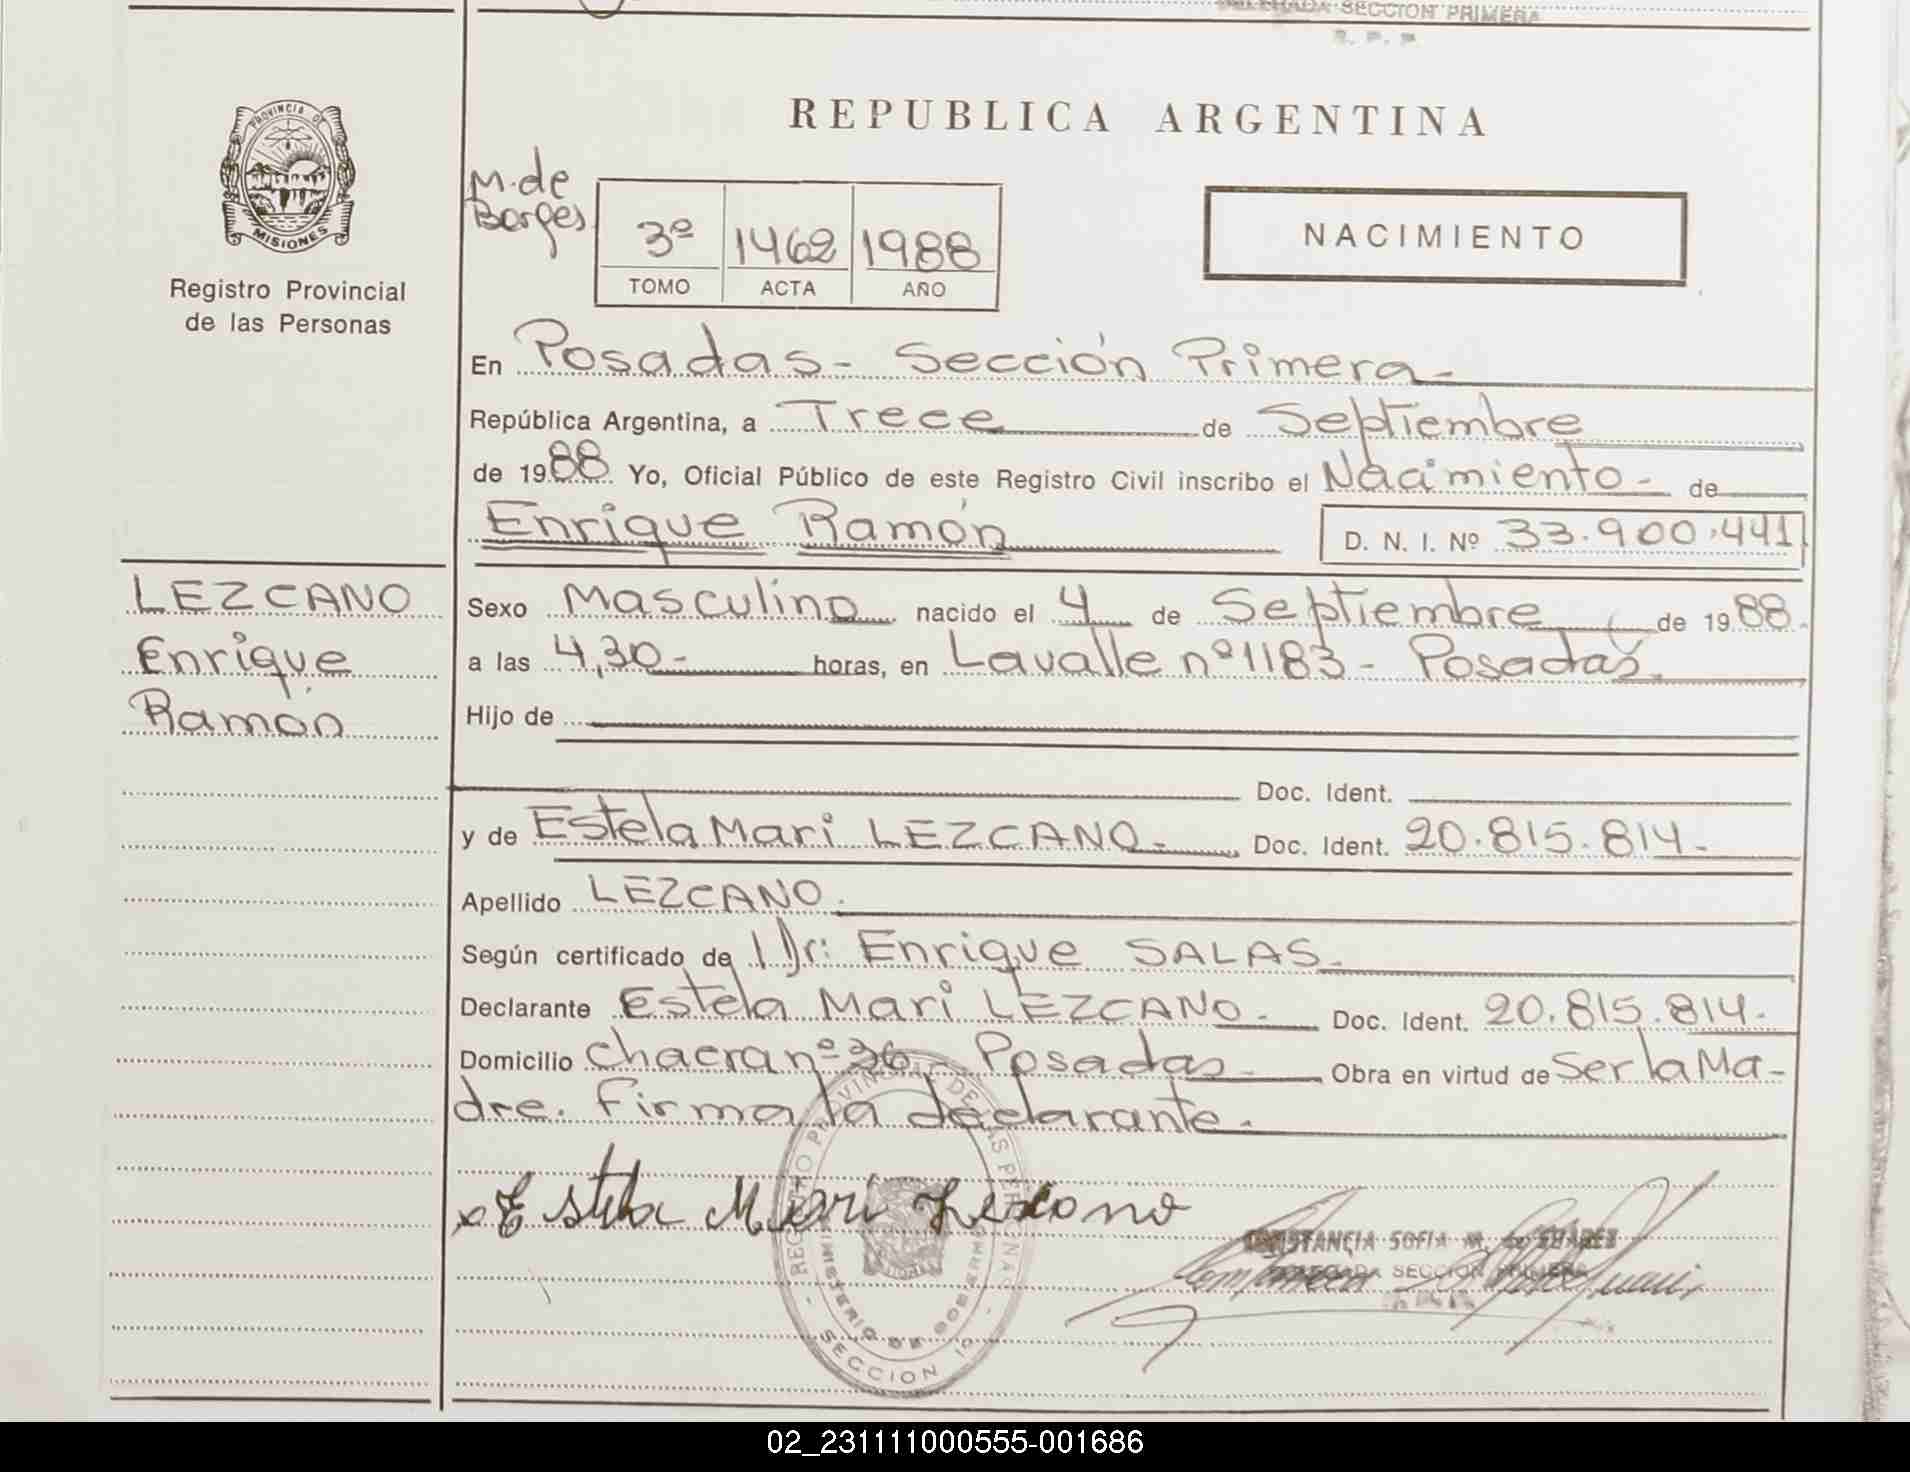 DELEGADA SECCION PRIMERA
R. P. P.
PROVINCIA DE
MISIONES
Registro Provincial
de las Personas
REPUBLICA ARGENTINA
M. de
Borges
3º 1462 1988
TOMO ACTA AÑO
NACIMIENTO
En Posadas - Sección Primera -
República Argentina, a Trece de Septiembre
de 1988 Yo, Oficial Público de este Registro Civil inscribo el Nacimiento - de
Enrique Ramón D. N. I. Nº 33.900.441
LEZCANO
Enrique
Ramón
Sexo Masculino nacido el 4 de Septiembre de 1988.
a las 4,30 - horas, en Lavalle nº 1183 - Posadas.
Hijo de
Doc. Ident.
y de Estela Mari LEZCANO - Doc. Ident. 20.815.814 -
Apellido LEZCANO.
Según certificado de Dr: Enrique SALAS -
Declarante Estela Mari LEZCANO - Doc. Ident. 20.815.814 -
Domicilio Chacra nº 36 Posadas - Obra en virtud de Ser la Ma-
dre. Firma la declarante -
x Estela Mari Lezcano
REGISTRO PROVINCIAL DE LAS PERSONAS
MINISTERIO DE GOBIERNO
SECCION 1º
CONSTANCIA SOFIA M. de SUAREZ
DELEGADA SECCION PRIMERA
02_231111000555-001686